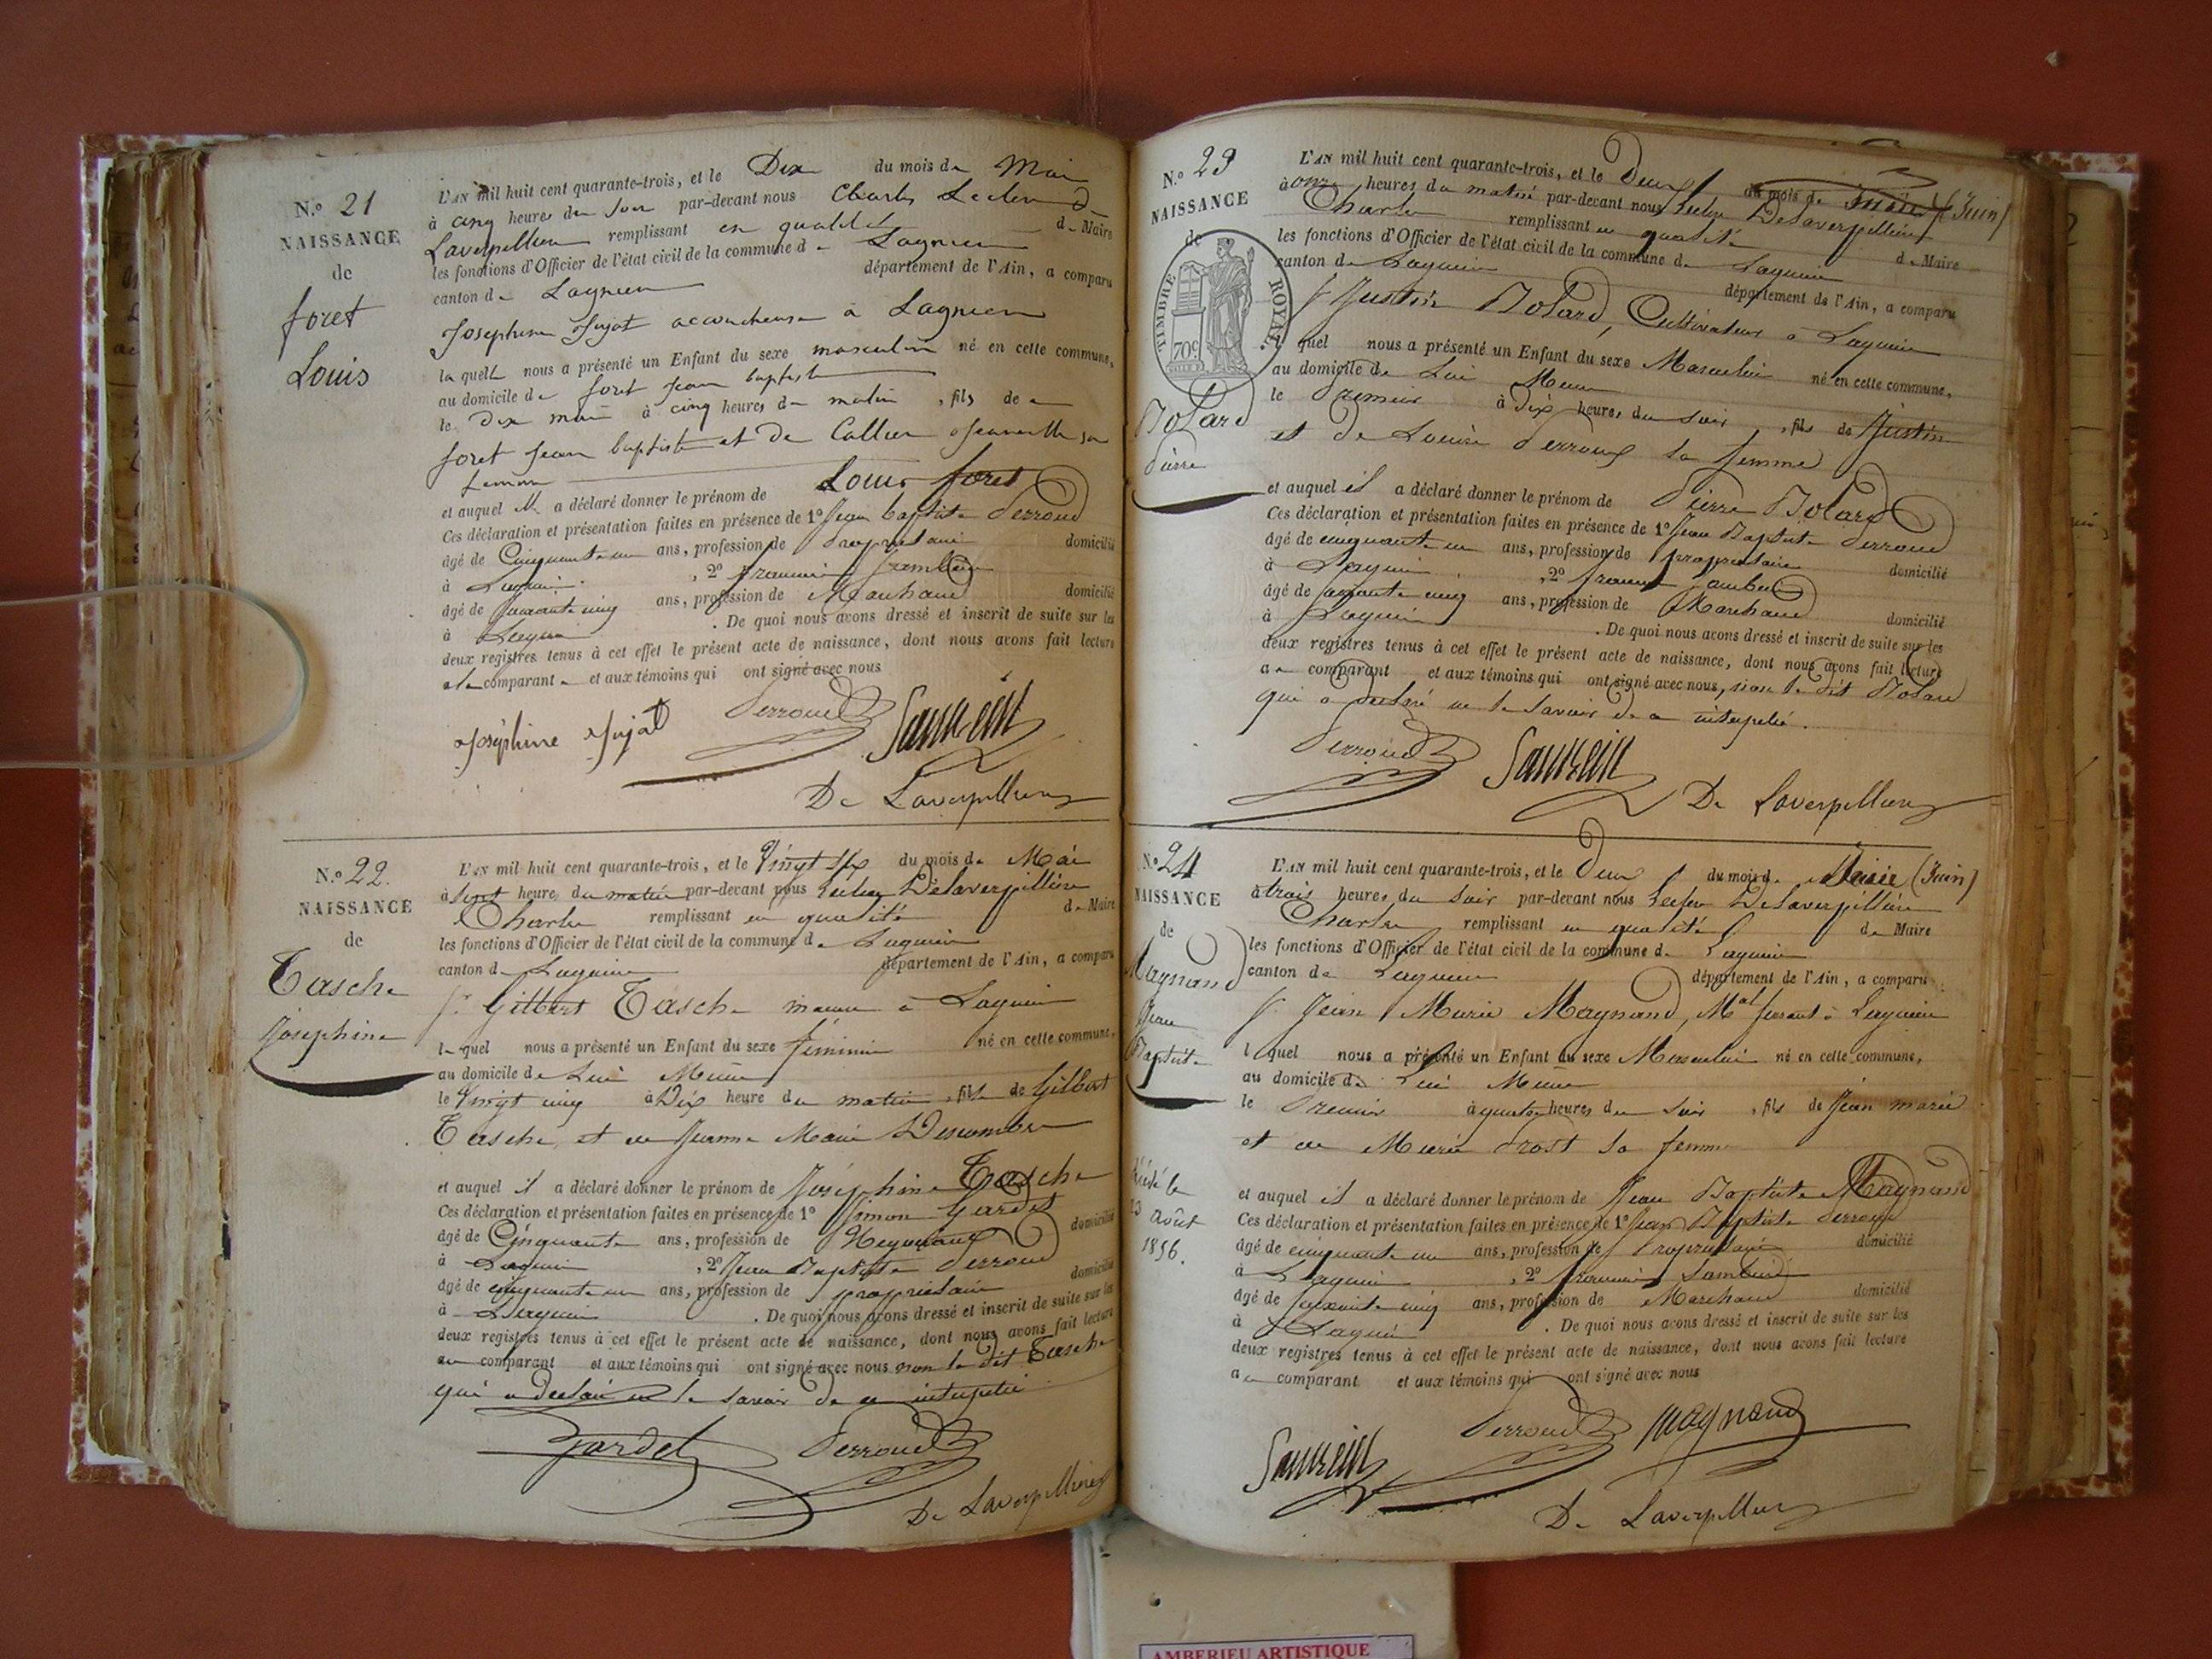 N.º 21
NAISSANCE
de
foret
Louis
L'AN mil huit cent quarante-trois, et le Dix du mois de Mai
à cinq heures du soir par-devant nous Charles Leclerc D
Laverpilliere remplissant en qualité de Maire
les fonctions d'Officier de l'état civil de la commune de Lagnieu
canton de Lagnieu département de l'Ain, a comparu
Josephine Jujat accoucheuse a Lagnieu
laquelle nous a présenté un Enfant du sexe masculin né en cette commune,
au domicile de foret jean baptiste
le Dix mai à cinq heures du matin, fils de
foret jean baptiste et de Jeannette sa
femme
et auquel elle a déclaré donner le prénom de Louis foret
Ces déclaration et présentation faites en présence de 1º Jean baptiste Perroud
âgé de Cinquante un ans, profession de Propriétaire domicilié
à Lagnieu, 2º françois
âgé de cinq ans, profession de Marchand domicilié
à Lagnieu. De quoi nous avons dressé et inscrit de suite sur les
deux registres tenus à cet effet le présent acte de naissance, dont nous avons fait lecture
a la comparante et aux témoins qui ont signé avec nous
Joséphine Jujat Perroud
De Laverpilliere
N.º 22.
NAISSANCE
de
Tasche
Josephine
L'AN mil huit cent quarante-trois, et le Vingt six du mois de Mai
à sept heures du matin par-devant nous Leclerc Delaverpilliére
Charles remplissant en qualité de Maire
les fonctions d'Officier de l'état civil de la commune de Lagnieu
canton de Lagnieu département de l'Ain, a comparu
Sr. Gilbert Tasche à Lagnieu
lequel nous a présenté un Enfant du sexe féminin né en cette commune,
au domicile de Lui Même
le Vingt cinq à Dix heures du matin, fille de Gilbert
Tasche, et de Jeanne Marie Descombes
et auquel il a déclaré donner le prénom de Joséphine Tasche
Ces déclaration et présentation faites en présence de 1º Simon Gardet
âgé de Cinquante ans, profession de domicilié
à Lagnieu, 2º Jean Baptiste Perroud
âgé de cinquante un ans, profession de propriétaire domicilié
à Lagnieu. De quoi nous avons dressé et inscrit de suite sur les
deux registres tenus à cet effet le présent acte de naissance, dont nous avons fait lecture
au comparant et aux témoins qui ont signé avec nous non le dit Tasche
qui a déclaré ne le savoir de ce interpelié
Gardet Perroud
De Laverpilliere
N.º 23
NAISSANCE
de
TIMBRE ROYAL
70 c
Bolard
Pierre
L'AN mil huit cent quarante-trois, et le Deux du mois de (Juin)
à onze heures du matin par-devant nous Leclerc Delaverpilliére
Charles remplissant en qualité de Maire
les fonctions d'Officier de l'état civil de la commune de Lagnieu
canton de Lagnieu département de l'Ain, a comparu
Sr. Justin Bolard, Cultivateur à Lagnieu
lequel nous a présenté un Enfant du sexe Masculin né en cette commune,
au domicile de Lui Même
le Premier à Dix heures du soir, fils de Justin
et de Louise Perroud sa femme
et auquel il a déclaré donner le prénom de Pierre Bolard
Ces déclaration et présentation faites en présence de 1º Jean Baptiste Perroud
âgé de cinquante un ans, profession de propriétaire domicilié
à Lagnieu, 2º françois
âgé de cinq ans, profession de Marchand domicilié
à Lagnieu. De quoi nous avons dressé et inscrit de suite sur les
deux registres tenus à cet effet le présent acte de naissance, dont nous avons fait lecture
au comparant et aux témoins qui ont signé avec nous, non le dit Bolard
qui a déclaré ne le savoir de ce interpelié.
Perroud
De Laverpilliere
N.º 24
NAISSANCE
de
Magnand
Jean
Baptiste
Décédé le
23
Août
1856.
L'AN mil huit cent quarante-trois, et le Deux du mois de (Juin)
à trois heures du soir par-devant nous Leclerc Delaverpilliére
Charles remplissant en qualité de Maire
les fonctions d'Officier de l'état civil de la commune de Lagnieu
canton de Lagnieu département de l'Ain, a comparu
Sr. Jean Marie Magnand, Mal ferrant à Lagnieu
lequel nous a présenté un Enfant du sexe Masculin né en cette commune,
au domicile de Lui Même
le Premier à quatre heures du soir, fils de Jean marie
et de Marie Prost sa femme
et auquel il a déclaré donner le prénom de Jean Baptiste Magnand
Ces déclaration et présentation faites en présence de 1º Jean Baptiste Perroud
âgé de cinquante un ans, profession de Propriétaire domicilié
à Lagnieu, 2º françois
âgé de soixante cinq ans, profession de Marchand domicilié
à Lagnieu. De quoi nous avons dressé et inscrit de suite sur les
deux registres tenus à cet effet le présent acte de naissance, dont nous avons fait lecture
au comparant et aux témoins qui ont signé avec nous
Perroud magnand
De Laverpilliere
AMBERIEU ARTISTIQUE